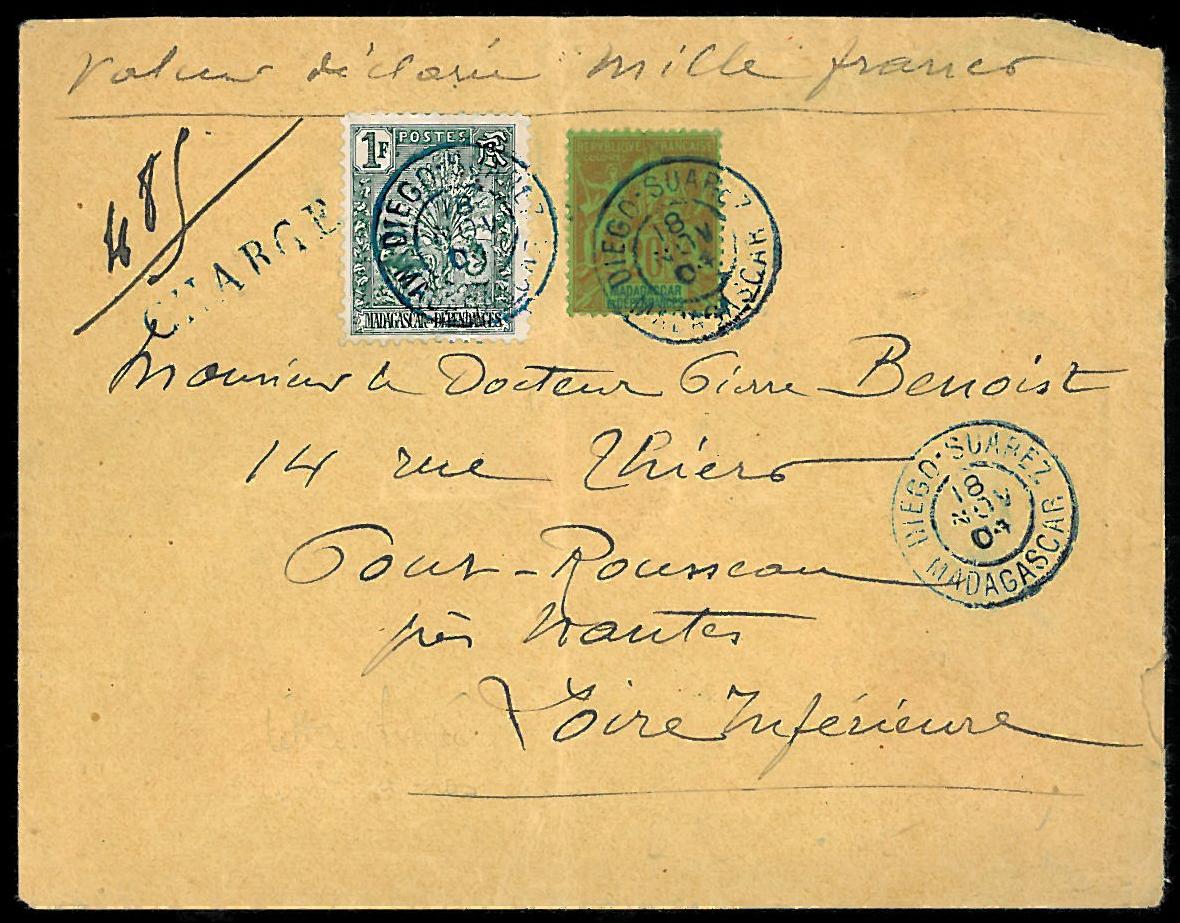 Valeur déclarée mille francs
485
CHARGÉ
1F POSTES RF
MADAGASCAR ET DÉPENDANCES
DIEGO-SUAREZ
18 NOV 04
MADAGASCAR
RÉPUBLIQUE FRANÇAISE
COLONIES
MADAGASCAR
ET DÉPENDANCES
DIEGO-SUAREZ
18 NOV 04
MADAGASCAR
Monsieur le Docteur Pierre Benoist
14 rue Thiers
Pont-Rousseau
près Nantes
Loire Inférieure
DIEGO-SUAREZ
18 NOV 04
MADAGASCAR